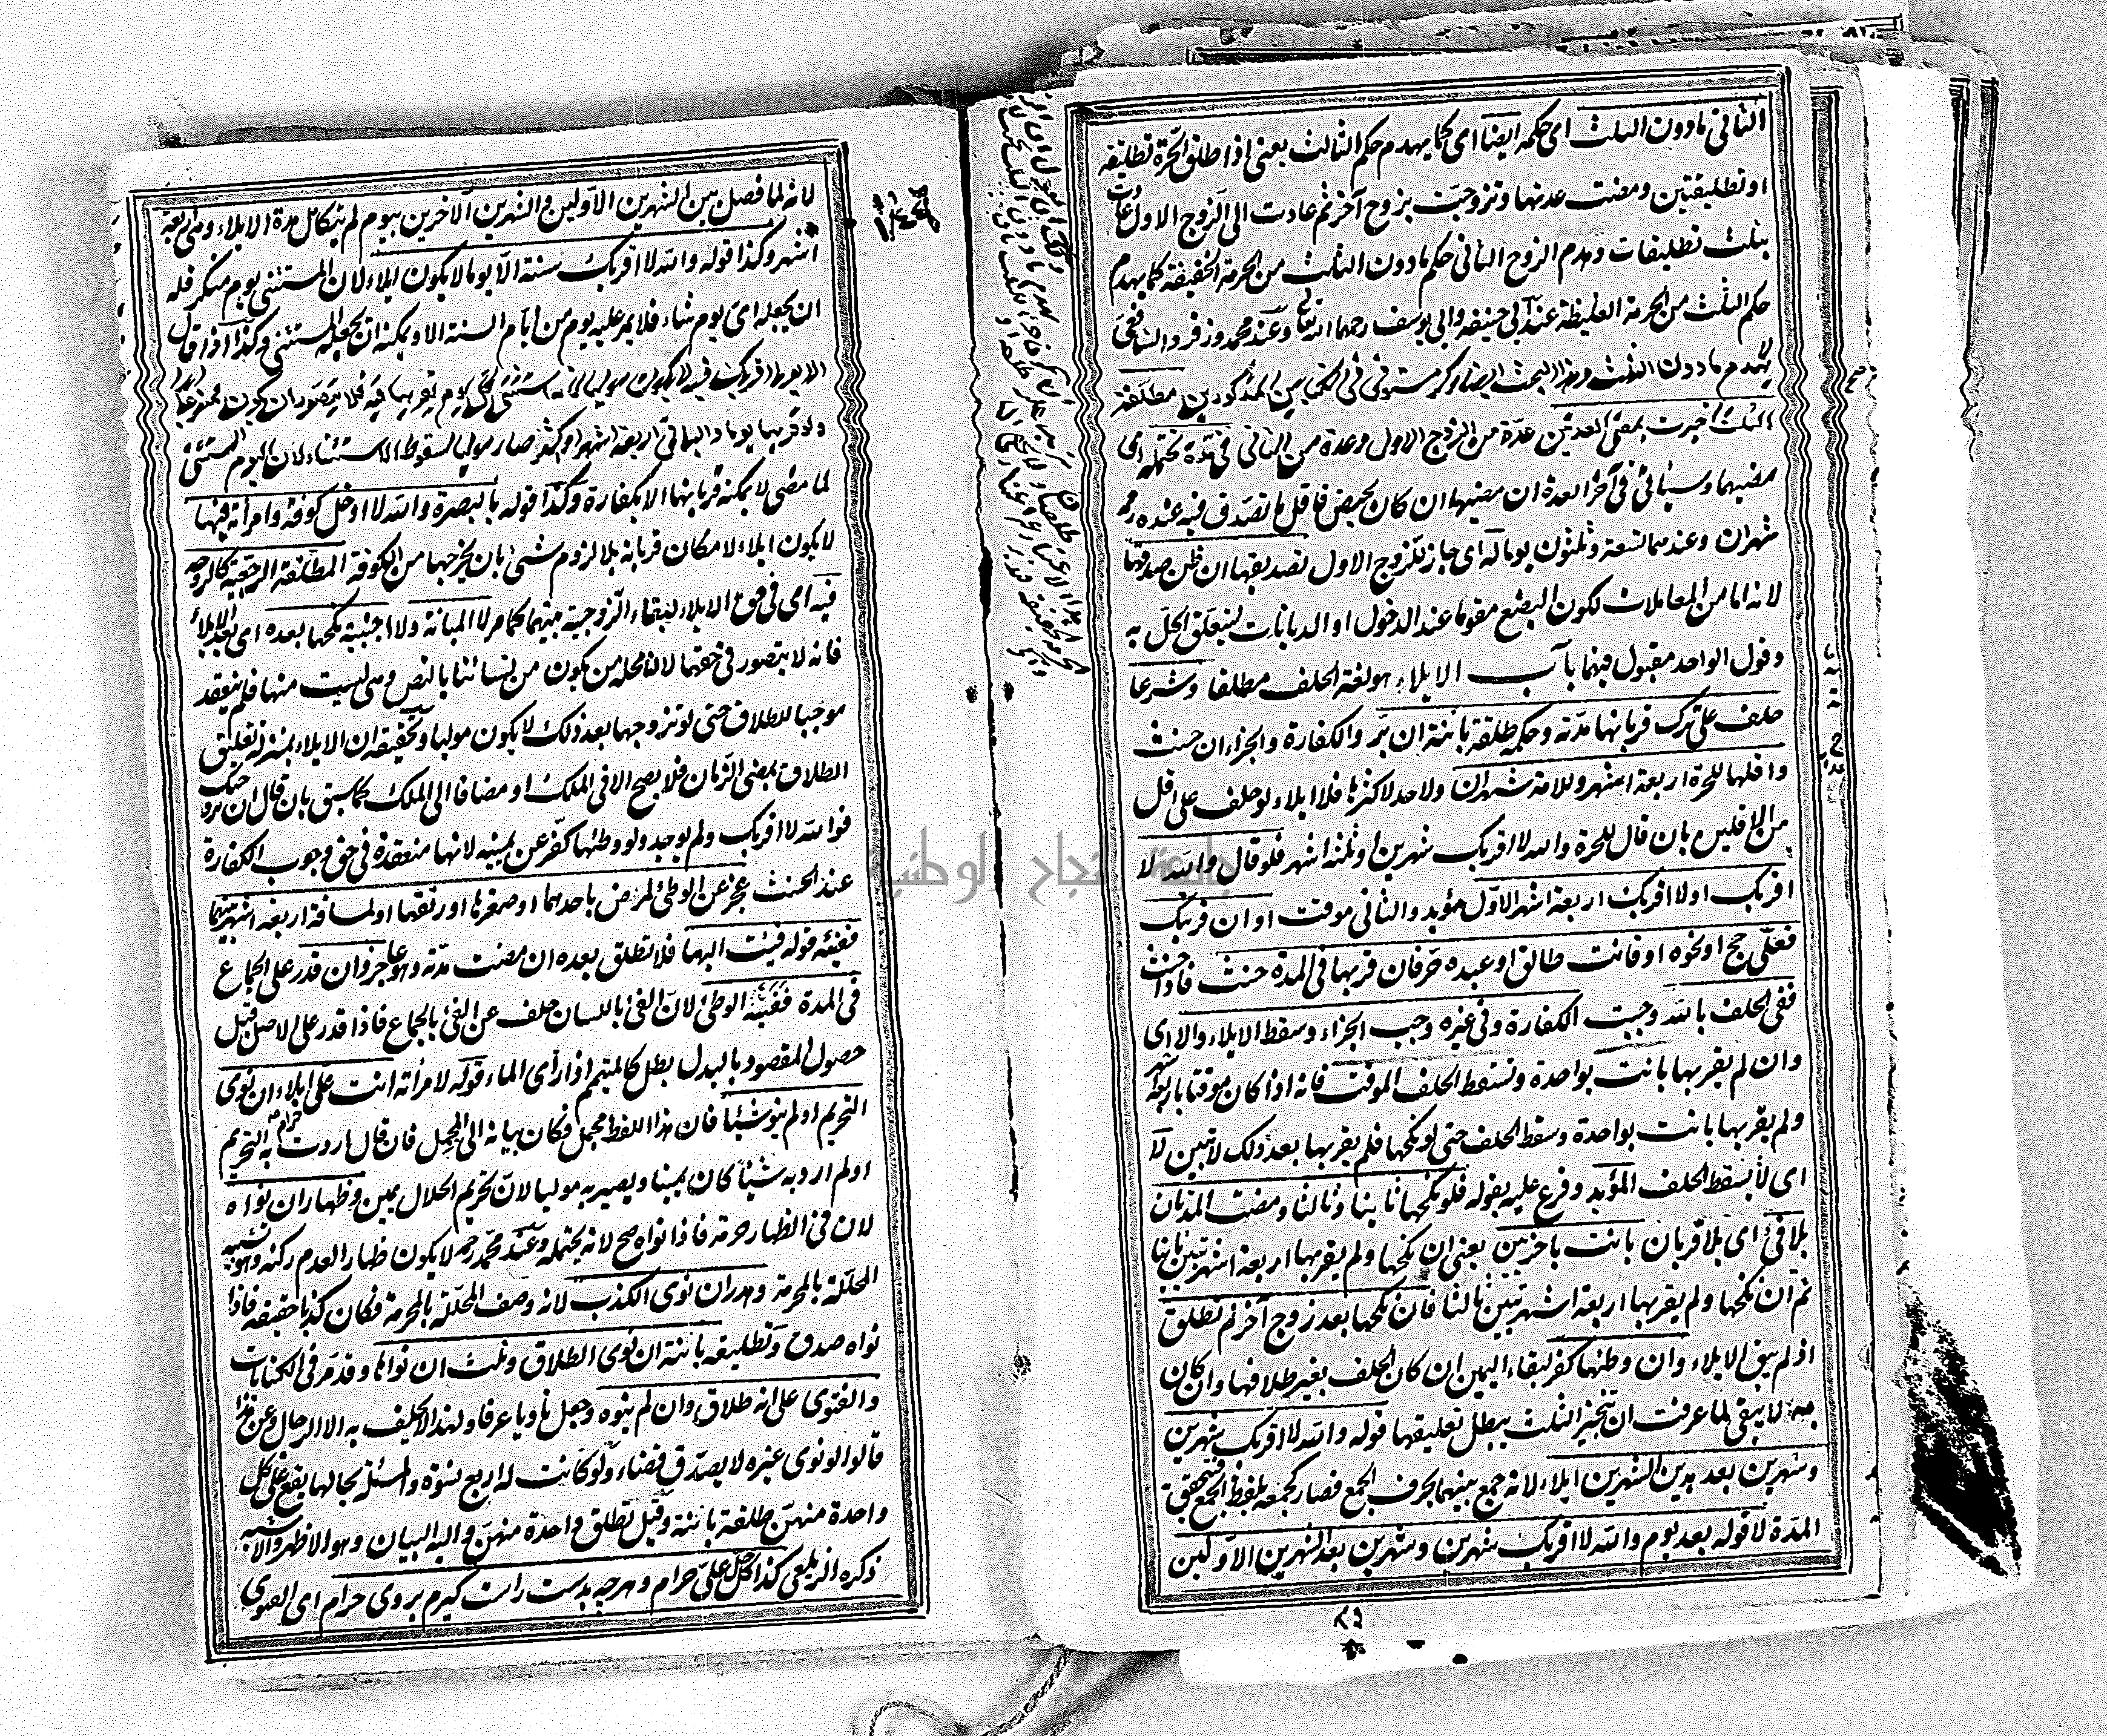 الثاني مادون الثلث اى حكمه ايضا اى كما يهدم حكم الثالث يعنى اذا طلق الحرة تطليقة
او تطليقتين ومضت عدتها وتزوجت بزوج آخر ثم عادت الى الزوج الاول عادت
بثلث تطليقات وهدم الزوج الثانى حكم مادون الثلث من الحرمة الخفيفة كما يهدم
حكم الثلث من الحرمة الغليظة عند ابى حنيفة وابى يوسف رحمهما الله تعالى وعند محمد وزفر والشافعى
لا يهدم مادون الثلث وهذا البحث ايضا ذكر مستوفى فى الكتابين المذكورين مطلقة
الثلث اخبرت بمضى العدتين عدة من الزوج الاول وعدة من الثانى فى مدة تحتمله اى
مضيهما وسيأتى فى آخر العدة ان مضيها ان كان بحيض فاقل ما تصدق فيه عنده رحمه
شهران وعندهما تسعة وثلثون يوما له اى جاز للزوج الاول تصديقها ان ظن صدقها
لانه اما من المعاملات لكون البضع مقوما عند الدخول او الديانات لتعلق الحل به
وقول الواحد مقبول فيهما باب الايلاء هو لغة الحلف مطلقا وشرعا
حلف على ترك قربانها مدته وحكمه طلقة بائنة ان بر والكفارة والجزاء ان حنث
واقلها للحرة اربعة اشهر وللامة شهران ولا حد لاكثرها فلا ايلاء لو حلف على اقل
من الاقلين بان قال للحرة والله لا اقربك شهرين او ثلثة اشهر فلو قال والله لا
اقربك او لا اقربك اربعة اشهر الاول مؤبد والثانى موقت او ان قربتك
فعلى حج او نحوه او فانت طالق او عبده حر فان قربها فى المدة حنث فاذا حنث
ففى الحلف بالله وجبت الكفارة وفى غيره وجب الجزاء وسقط الايلاء والا اى
وان لم يقربها بانت بواحدة وسقط الحلف الموقت فانه اذا كان موقتا باربعة اشهر
ولم يقربها بانت بواحدة وسقط الحلف حتى لو نكحها فلم يقربها بعد ذلك لا تبين لا
اى لا يسقط الحلف المؤبد وفرع عليه بقوله فلو نكحها ثانيا وثالثا ومضت المدتان
بلا فئ اى بلا قربان بانت باخريين يعنى ان نكحها ولم يقربها اربعة اشهر تبين ثانيا
ثم ان نكحها ولم يقربها اربعة اشهر تبين ثالثا فان نكحها بعد زوج آخر لم تطلق
اذ لم يبق الايلاء وان وطئها كفر لبقاء اليمين ان كان الحلف بغير طلاقها وان كان
به لا يبقى لما عرفت ان تنجيز الثلث يبطل تعليقها قوله والله لا اقربك شهرين
وشهرين بعد هذين الشهرين ايلاء لانه جمع بينهما بحرف الجمع فصار كجمعه بلفظ الجمع فتحقق
المدة لا قوله بعد يوم والله لا اقربك شهرين وشهرين بعد الشهرين الاولين
لانه لما فصل بين الشهرين الاولين والشهرين الآخرين بيوم لم تتكامل مدة الايلاء وهى اربعة
اشهر وكذا قوله والله لا اقربك سنة الا يوما لا يكون ايلاء لان المستثنى يوم منكر فله
ان يجعله اى يوم شاء فلا يمر عليه يوم من ايام السنة الا ويمكنه ان يجعله المستثنى وكذا اذا قال
الا يوما اقربك فيه لا يكون موليا لانه استثنى كل يوم يقربها فيه فلا يتصور ان يكون ممنوعا
ولو قربها يوما والباقى اربعة اشهر او اكثر صار موليا لسقوط الاستثناء لان اليوم المستثنى
لما مضى لا يمكنه قربانها الا بكفارة وكذا قوله بالبصرة والله لا ادخل كوفة وامرأته فيها
لا يكون ايلاء لامكان قربانه بلا لزوم شئ بان يخرجها من الكوفة المطلقة الرجعية كالزوجة
فيه اى فى حق الايلاء لبقاء الزوجية بينهما كما مر لا المبانة ولا اجنبية نكحها بعده اى بعد الايلاء
فانه لا يتصور فى حقها لان محله من يكون من نسائنا بالنص وهى ليست منها فلم ينعقد
موجبا للطلاق حتى لو تزوجها بعد ذلك لا يكون موليا وتحقيقه ان الايلاء بمنزلة تعليق
الطلاق بمضى الزمان فلا يصح الا فى الملك او مضافا الى الملك كما سبق بان قال ان تزوجتك
فوالله لا اقربك ولم يوجد ولو وطئها كفر عن يمينه لانها منعقدة فى حق وجوب الكفارة
عند الحنث عجز عن الوطئ لمرض باحدهما او صغرها او رتقها او لمسافة اربعة اشهر بينهما
ففيئه قوله فئت اليها فلا تطلق بعده ان مضت مدته وهو عاجز وان قدر على الجماع
فى المدة ففيئه الوطئ لان الفئ باللسان خلف عن الفئ بالجماع فاذا قدر على الاصل قبل
حصول المقصود بالبدل بطل كالمتيمم اذا رأى الماء قوله لامرأته انت على حرام ايلاء ان نوى
التحريم او لم ينو شيئا فان هذا اللفظ مجمل فكان بيانه الى المجمل فان قال اردت به التحريم
او لم ارد به شيئا كان يمينا ويصير به موليا لان تحريم الحلال يمين وظهار ان نواه
لان فى الظهار حرمة فاذا نواه صح لانه يحتمله وعند محمد رحمه لا يكون ظهارا لعدم ركنه وهو تشبيه
المحللة بالمحرمة وهدر ان نوى الكذب لانه وصف المحللة بالحرمة فكان كذبا حقيقة فاذا
نواه صدق وتطليقة بائنة ان نوى الطلاق وثلث ان نواها وقد مر فى الكنايات
والفتوى على انه طلاق وان لم ينوه وجعل ناويا عرفا ولهذا لا يحلف به الا الرجال وعن هذا
قالوا لو نوى غيره لا يصدق قضاء ولو كانت له اربع نسوة والمسئلة بحالها يقع على كل
واحدة منهن طلقة بائنة وقيل تطلق واحدة منهن واليه البيان وهو الاظهر والاشبه
ذكره الزيلعى كذا كل حل على حرام وهرچه بدست راست كيرم بروى حرام اى الفتوى